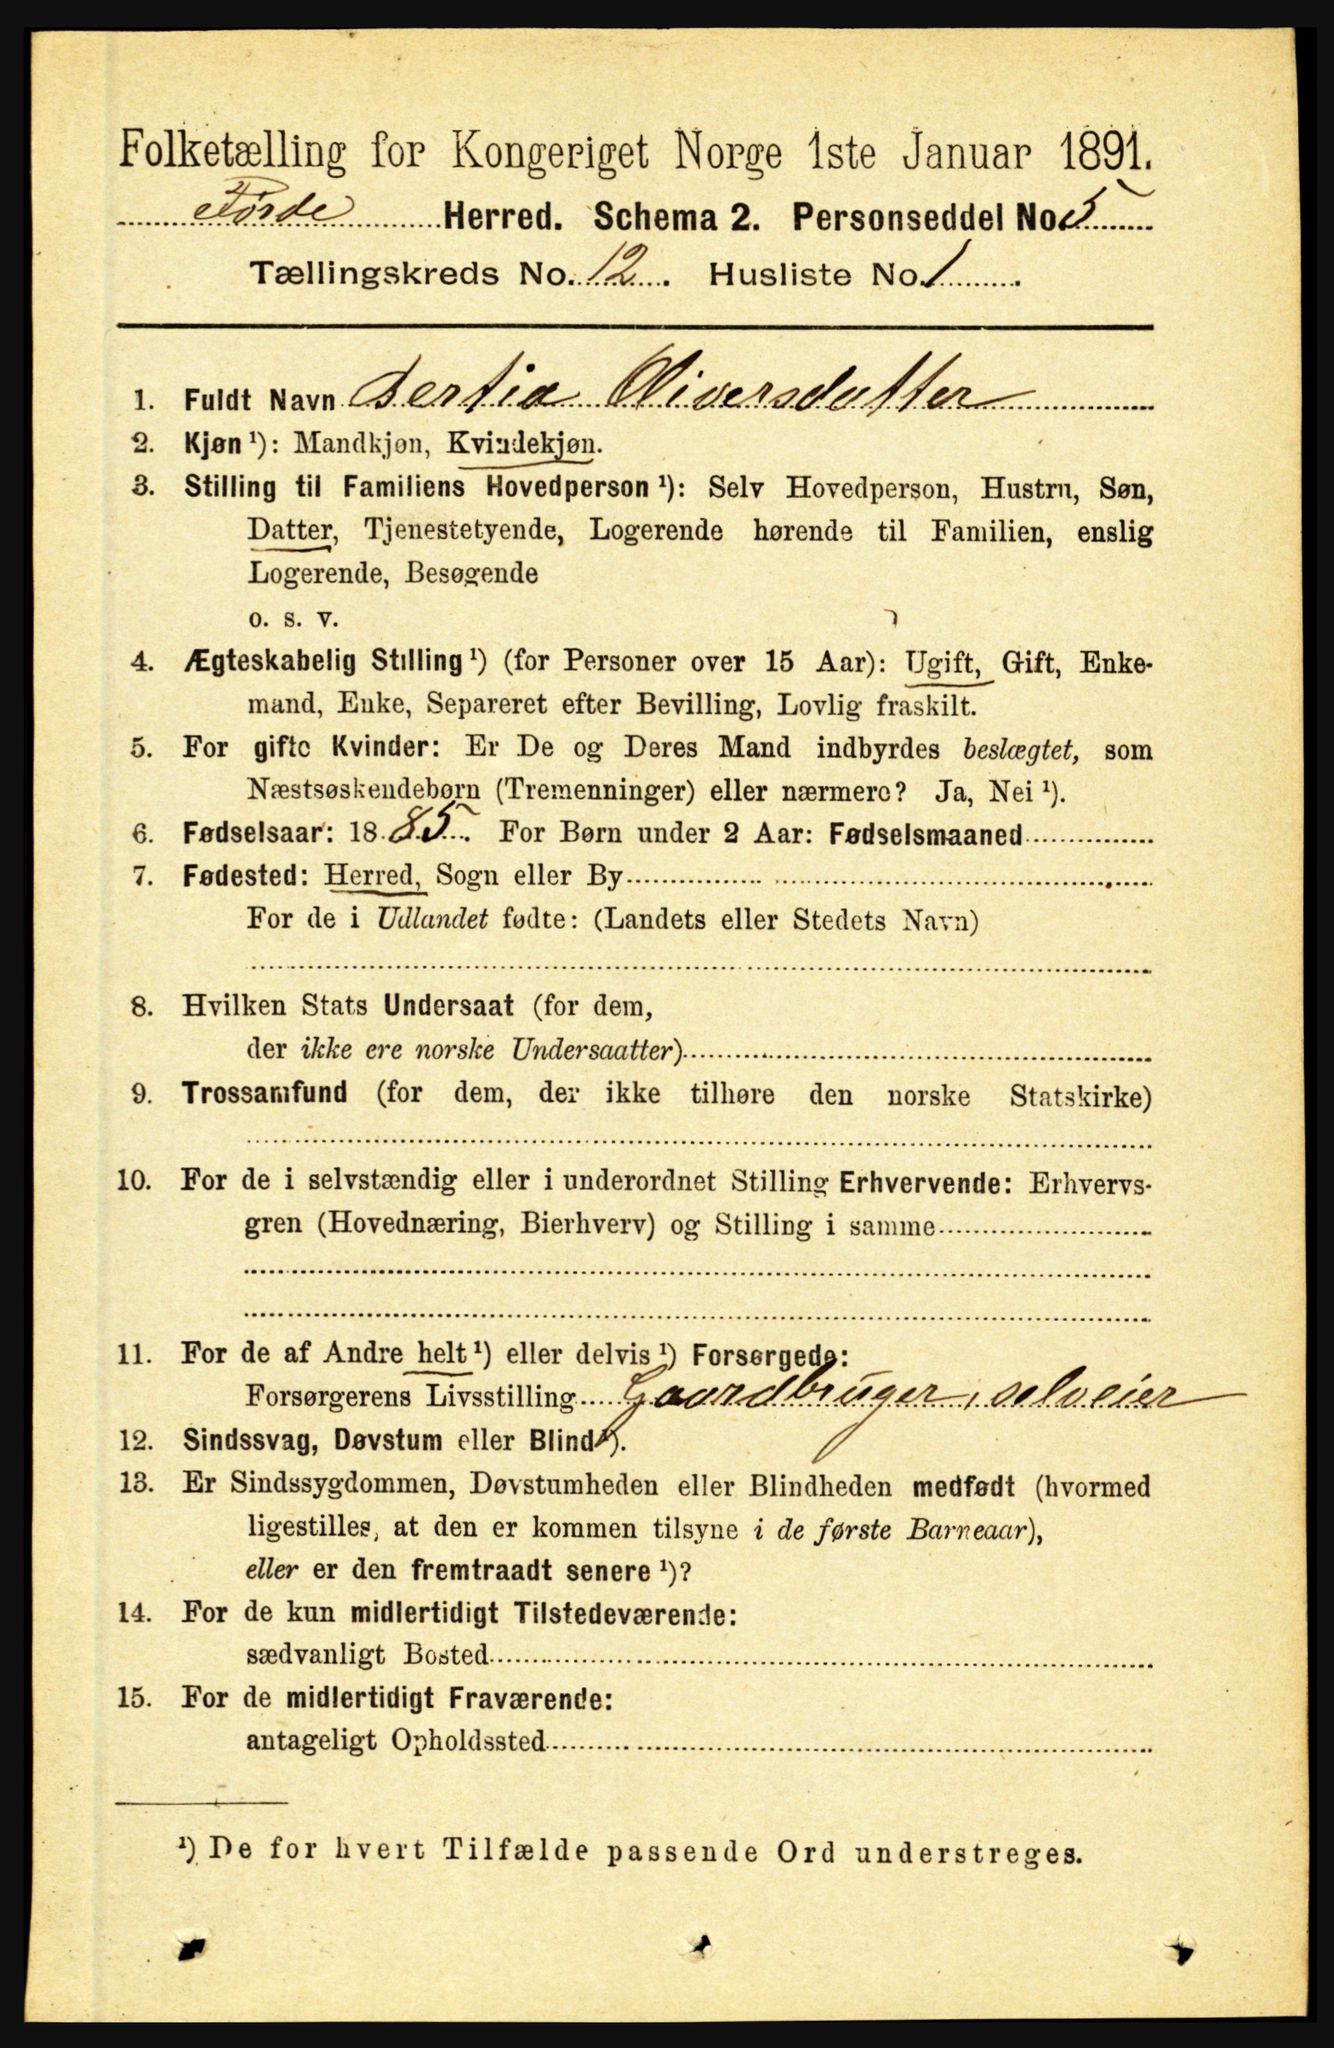 Folketælling for Kongeriget Norge 1ste Januar 1891.
Førde Herred. Schema 2. Personseddel No. 5
Tællingskreds No. 12. Husliste No. 1.
1. Fuldt Navn Bertia Oliversdatter
2. Kjøn ¹): Mandkjøn, Kvindekjøn.
3. Stilling til Familiens Hovedperson ¹): Selv Hovedperson, Hustru, Søn,
Datter, Tjenestetyende, Logerende hørende til Familien, enslig
Logerende, Besøgende
o. s. v.
4. Ægteskabelig Stilling ¹) (for Personer over 15 Aar): Ugift, Gift, Enke-
mand, Enke, Separeret efter Bevilling, Lovlig fraskilt.
5. For gifte Kvinder: Er De og Deres Mand indbyrdes beslægtet, som
Næstsøskendebørn (Tremenninger) eller nærmere? Ja, Nei ¹).
6. Fødselsaar: 1885. For Børn under 2 Aar: Fødselsmaaned
7. Fødested: Herred, Sogn eller By
For de i Udlandet fødte: (Landets eller Stedets Navn)
8. Hvilken Stats Undersaat (for dem,
der ikke ere norske Undersaatter)
9. Trossamfund (for dem, der ikke tilhøre den norske Statskirke)
10. For de i selvstændig eller i underordnet Stilling Erhvervende: Erhvervs-
gren (Hovednæring, Bierhverv) og Stilling i samme
11. For de af Andre helt ¹) eller delvis ¹) Forsørgede:
Forsørgerens Livsstilling Gaardbruger, selveier
12. Sindssvag, Døvstum eller Blind ¹).
13. Er Sindssygdommen, Døvstumheden eller Blindheden medfødt (hvormed
ligestilles, at den er kommen tilsyne i de første Barneaar),
eller er den fremtraadt senere ¹)?
14. For de kun midlertidigt Tilstedeværende:
sædvanligt Bosted
15. For de midlertidigt Fraværende:
antageligt Opholdssted
¹) De for hvert Tilfælde passende Ord understreges.